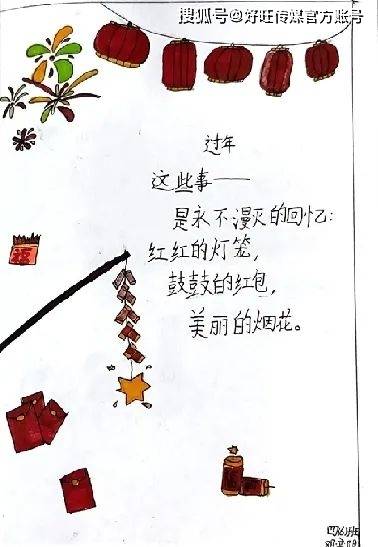 搜狐号@好旺传媒官方账号
过年
这些事——
是永不漫灭的回忆:
红红的灯笼,
福
鼓鼓的红包,
美丽的烟花。